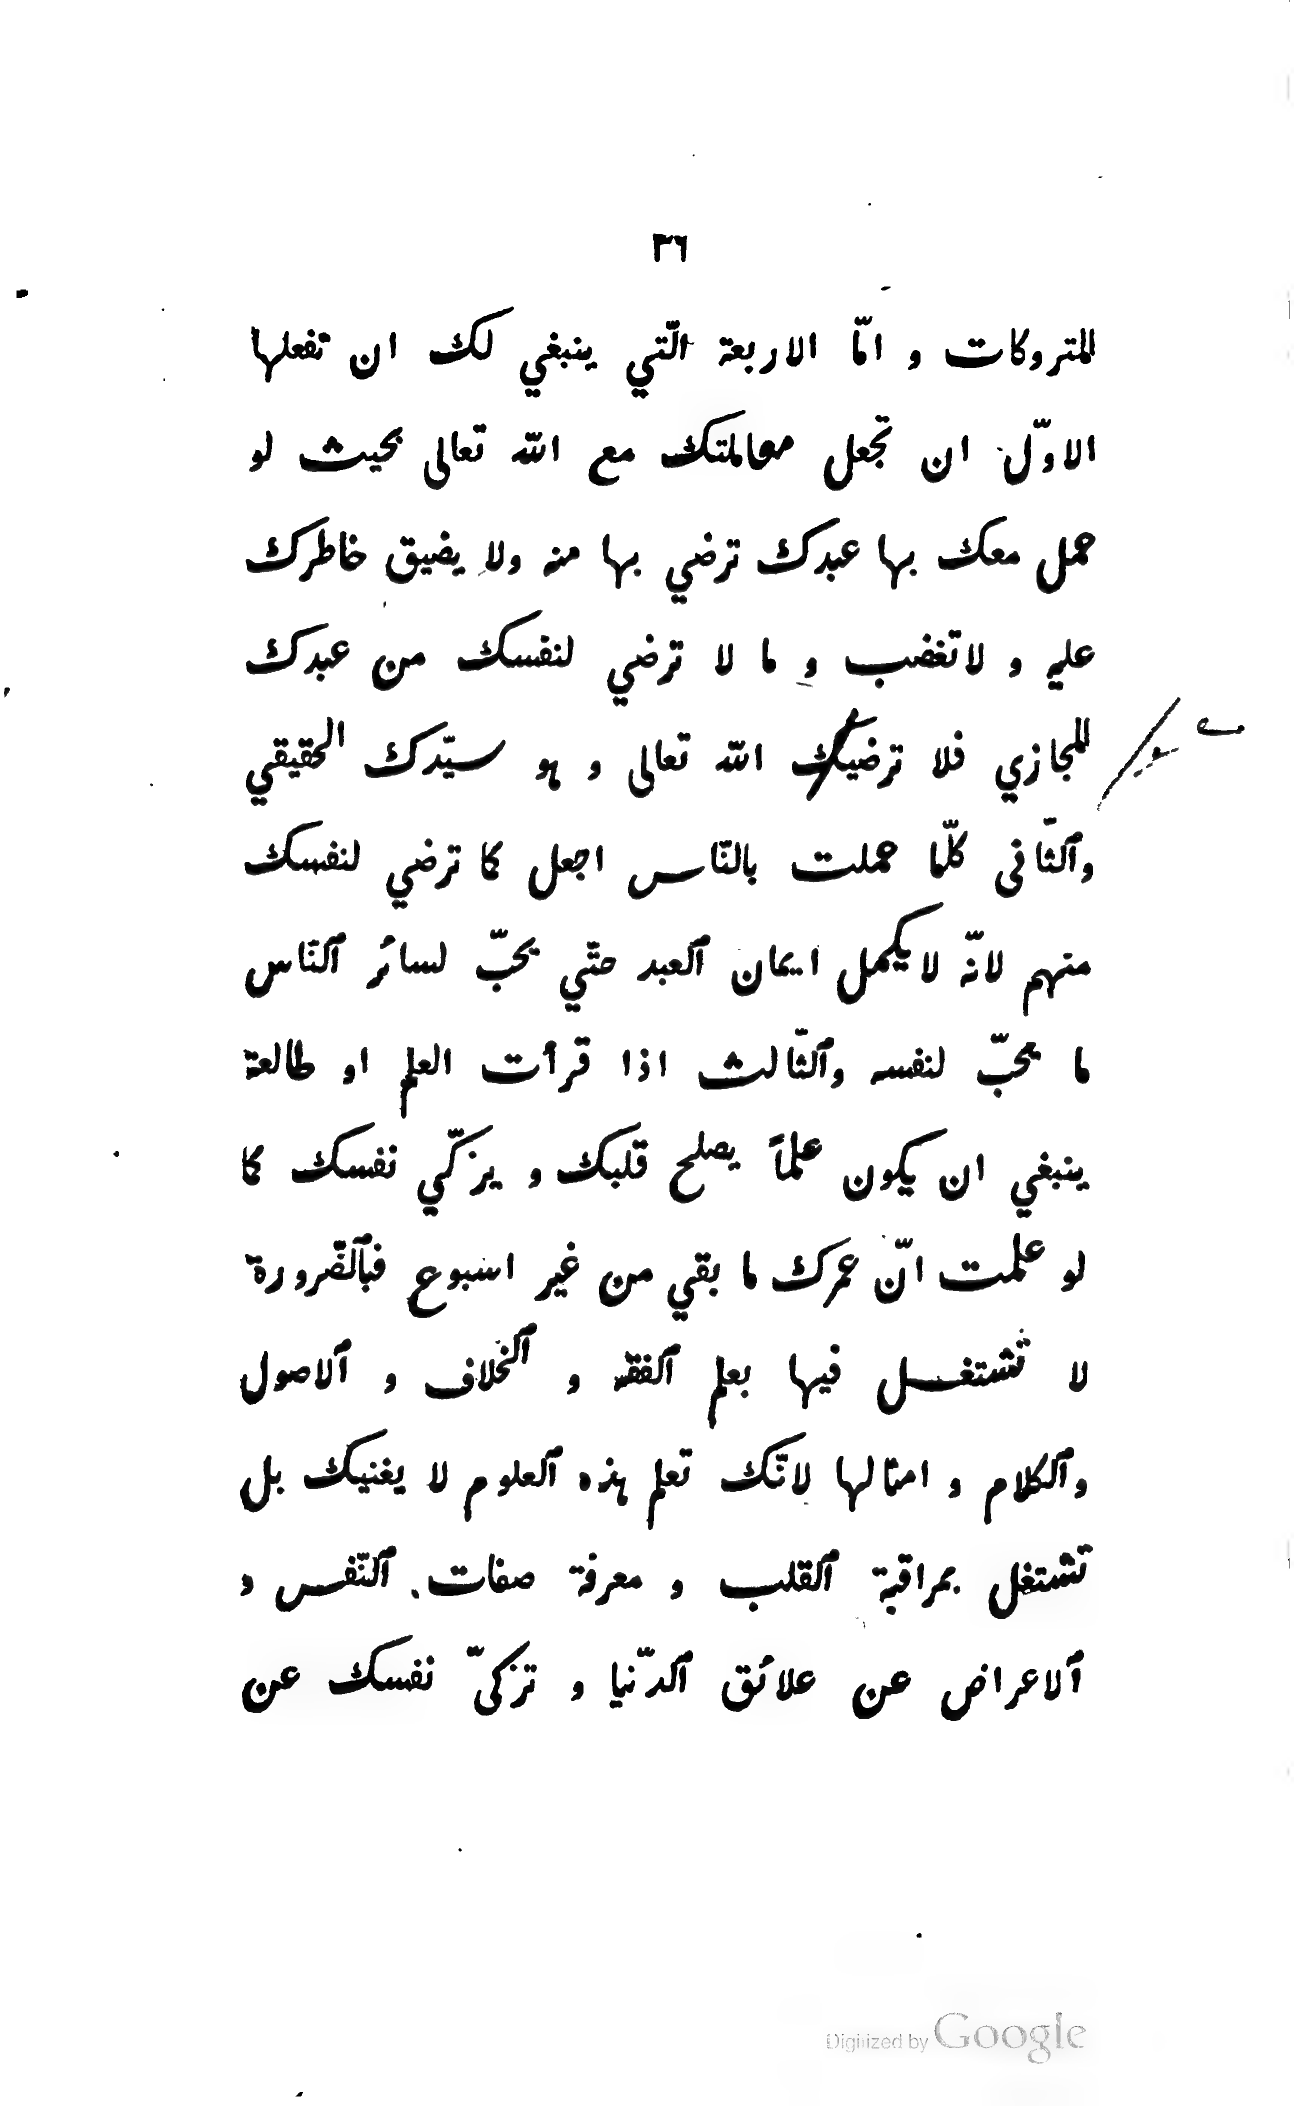 ٣٦
المتروكات و امّا الاربعة الّتي ينبغي لك ان تفعلها
الاوّل ان تجعل معاملتك مع اللّه تعالى بحيث لو
عمل معك بها عبدك ترضي بها منه ولا يضيق خاطرك
عليه و لاتغضب و ما لا ترضي لنفسك من عبدك
المجازي فلا ترضيك اللّه تعالى و هو سيّدك الحقيقي
وٱلثّانى كلّما عملت بالنّاس اجعل كما ترضي لنفسك
منهم لانّه لا يكمل ايمان ٱلعبد حتّي يحبّ لسائر ٱلنّاس
ما يحبّ لنفسه وٱلثّالث اذا قرأت العلم او طالعة
ينبغي ان يكون علماً يصلح قلبك و يزكّي نفسك كما
لو علمت انّ عمرك ما بقي من غير اسبوع فبٱلضّرورة
لا تشتغل فيها بعلم ٱلفقه و ٱلخلاف و ٱلاصول
وٱلكلام و امثالها لانّك تعلم هذه ٱلعلوم لا يغنيك بل
تشتغل بمراقبة ٱلقلب و معرفة صفات ٱلنّفس و
ٱلاعراض عن علائق ٱلدّنيا و تزكّى نفسك عن
Digitized by Google